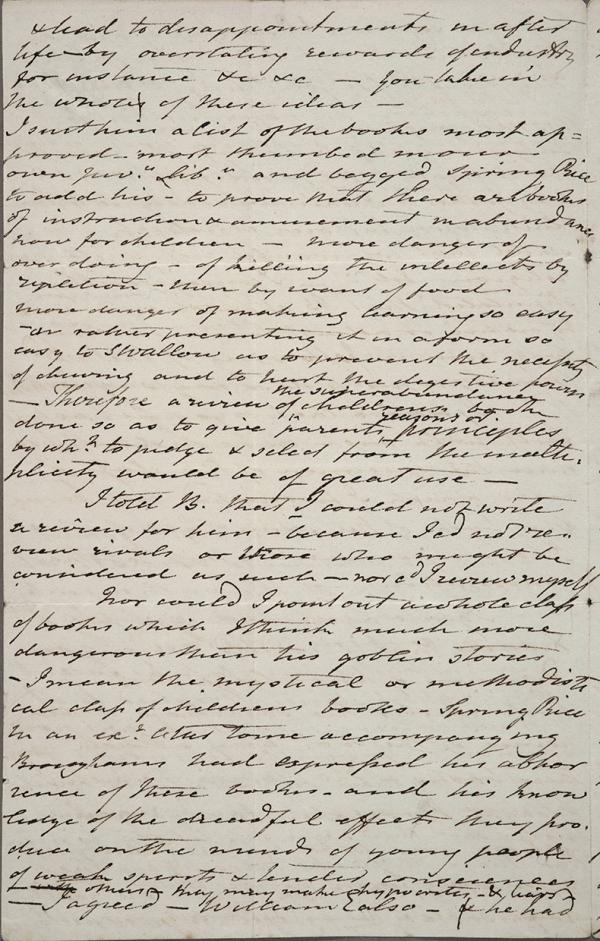 & lead to disappointments in after
life – by overstating rewards of industry
for instance &c &c – You take in
the whole of these ideas –
I sent him a list of the books most ap=
proved – most thumbed in our
own juv.e Lib.y and begged Spring Rice
to add his – to prove that there are books
of instruction & amusement in abundance
now for children – more danger of
over doing – of killing the intellects by
repletion – than by want of food
more danger of making learning so easy
– or rather presenting it in a form so
easy to swallow as to prevent the necessity
of chewing and to hurt the digestive powers
– Therefore a review of the superabundance
of childrens books
done so as to give parents reasons or principles
by wh.h to judge & select from the multi-
plicity would be of great use –
I told B. that I could not write
a review for him – because I cd not re-
view rivals or those who might be
considered as such – nor cd I review myself
Nor could I point out a whole class
of books which I think much more
dangerous than his goblin stories
– I mean the mystical or methodisti
cal class of childrens books – Spring Rice
in an ex.t letter to me accompanying
Broughams had expressed his abhor
rence of these books – and his know
ledge of the dreadful effects they pro-
duce on the minds of young people
of weak spirits & tender consciences
– others they may make hypocrites – & liars
– I agreed – William E also – & he had